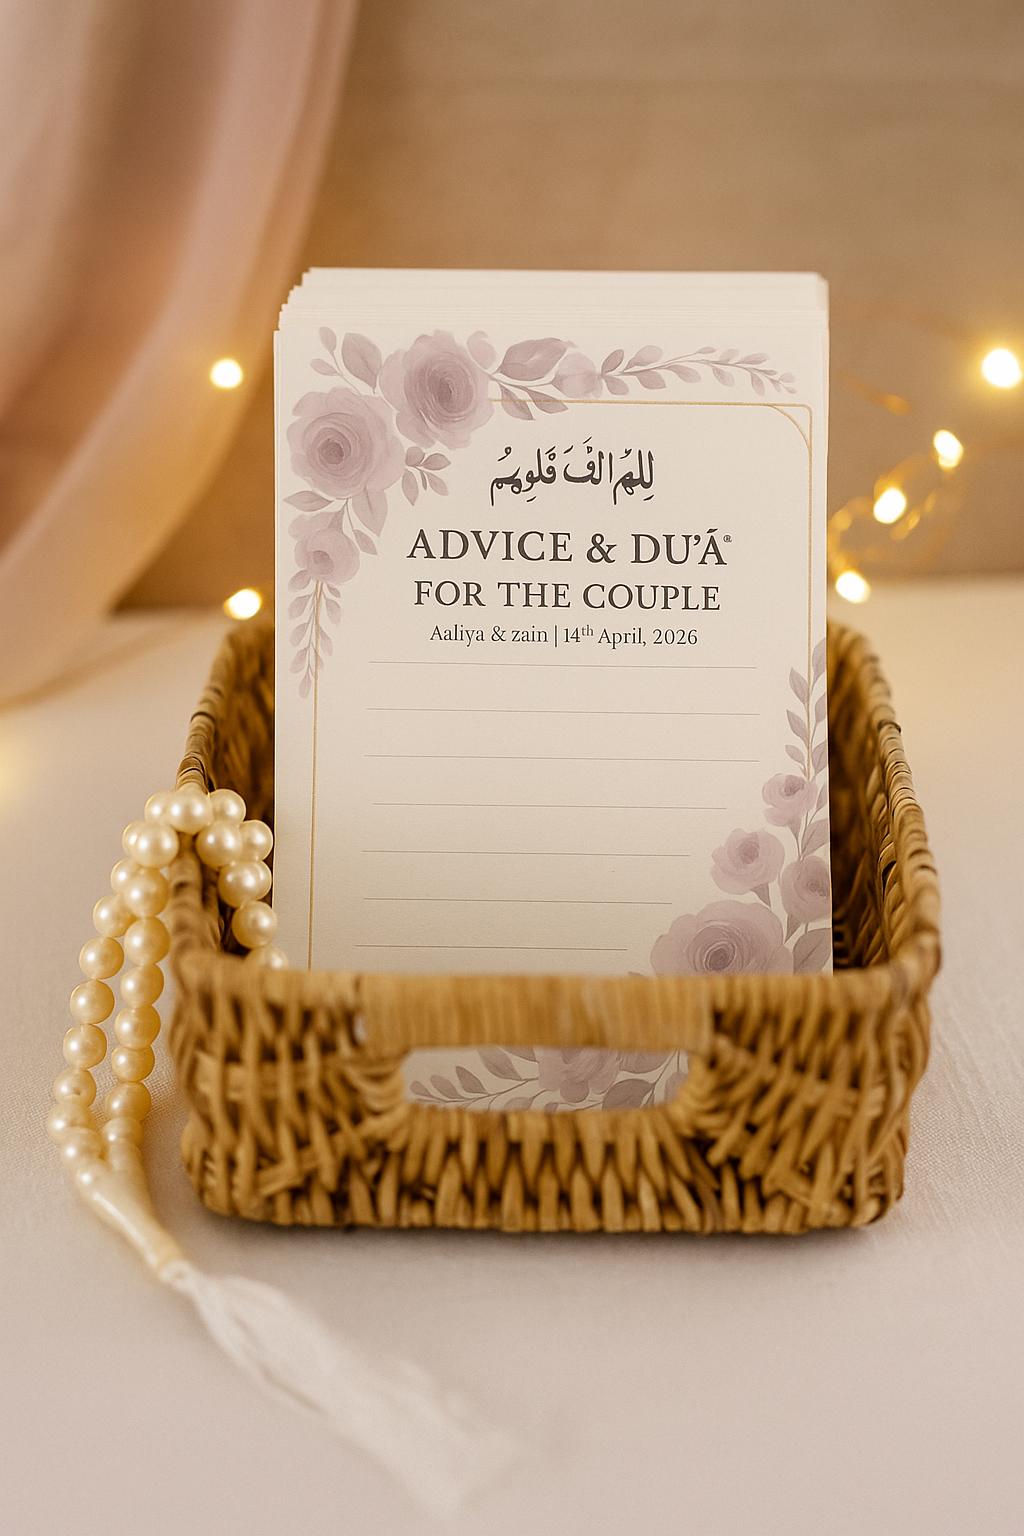 للهم الف قلوبهم
ADVICE & DU’Á®
FOR THE COUPLE
Aaliya & zain | 14th April, 2026